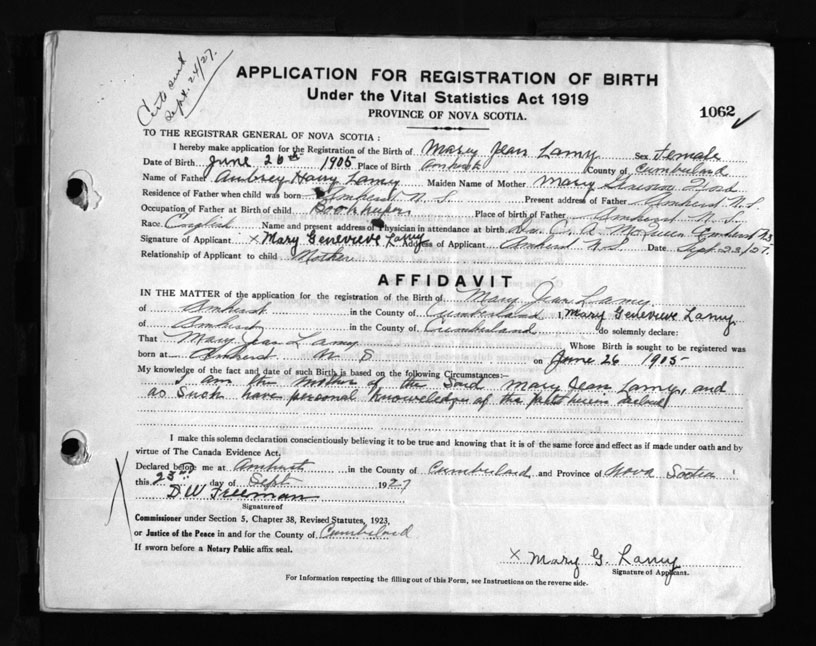 Certs sent
Sept. 24/27.
APPLICATION FOR REGISTRATION OF BIRTH
Under the Vital Statistics Act 1919
PROVINCE OF NOVA SCOTIA.
1062
TO THE REGISTRAR GENERAL OF NOVA SCOTIA:
I hereby make application for the Registration of the Birth of Mary Jean Lamy Sex Female
Date of Birth June 26th 1905 Place of Birth Amherst County of Cumberland
Name of Father Aubrey Harry Lamy Maiden Name of Mother Mary
Residence of Father when child was born Amherst N.S. Present address of Father Amherst N.S.
Occupation of Father at Birth of child Bookkeeper Place of birth of Father Amherst N.S.
Race English Name and present address of Physician in attendance at birth Dr. C. A. McQueen Amherst N.S.
Signature of Applicant x Mary Genevieve Lamy Address of Applicant Amherst N.S. Date Sept. 23/27.
Relationship of Applicant to child Mother
AFFIDAVIT
IN THE MATTER of the application for the registration of the Birth of Mary Jean Lamy
of Amherst in the County of Cumberland I, Mary Genevieve Lamy
of Amherst in the County of Cumberland do solemnly declare:
That Mary Jean Lamy Whose Birth is sought to be registered was
born at Amherst N S on June 26 1905
My knowledge of the fact and date of such Birth is based on the following Circumstances:—
I am the mother of the said Mary Jean Lamy, and
as such have personal knowledge of the facts herein
I make this solemn declaration conscientiously believing it to be true and knowing that it is of the same force and effect as if made under oath and by
virtue of The Canada Evidence Act.
Declared before me at Amherst in the County of Cumberland and Province of Nova Scotia
this 23rd day of Sept 1927
D W Freeman
Signature of
Commissioner under Section 5, Chapter 38, Revised Statutes, 1923,
or Justice of the Peace in and for the County of Cumberland
If sworn before a Notary Public affix seal.
x Mary G. Lamy
Signature of Applicant.
For Information respecting the filling out of this Form, see Instructions on the reverse side.